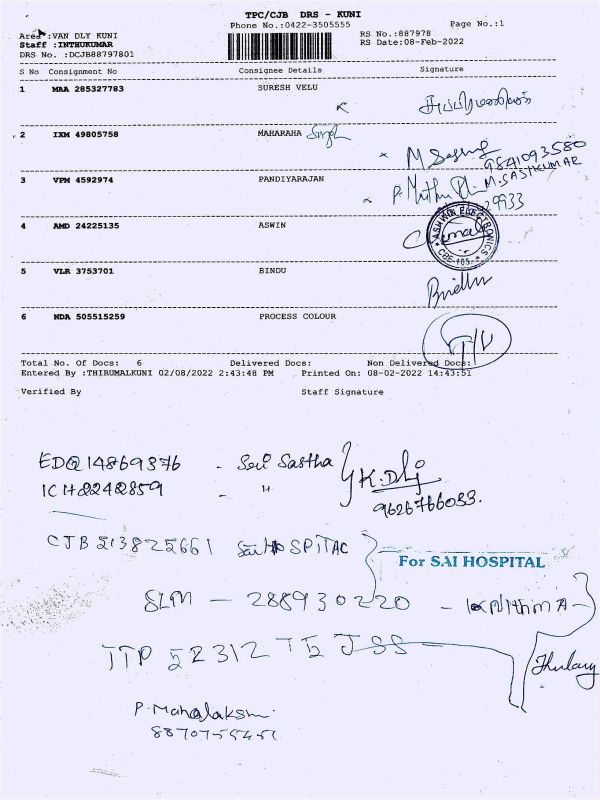 TPC/CJB DRS - KUNI
Phone No.:0422-3505555
Page No.:1
Area :VAN DLY KUNI
RS No.:887978
Staff :INTHUKUMAR
RS Date:08-Feb-2022
DRS No. :DCJB88797801
S No Consignment No Consignee Details Signature
1 MAA 285327783 SURESH VELU
2 IXM 49805758 MAHARAHA Singh
M Sas
9841093580
M.SASIKUMAR
3 VPM 4592974 PANDIYARAJAN
P. Muthu
29933
4 AMD 24225135 ASWIN
ASHWIN ELECTRONICS
5 VLR 3753701 BINDU
Bindhu
6 NDA 505515259 PROCESS COLOUR
Total No. Of Docs: 6 Delivered Docs: Non Delivered Docs:
Entered By :THIRUMALKUNI 02/08/2022 2:43:48 PM Printed On: 08-02-2022 14:43:51
Verified By Staff Signature
EDQ 14869376 - Sri Sastha
ICH 2242859 - "
9626766033.
CJB 213825661 Sai HOSPITAL
For SAI HOSPITAL
SLM - 288930220
TTP 52312 75 JSS
P. Mahalaksmi